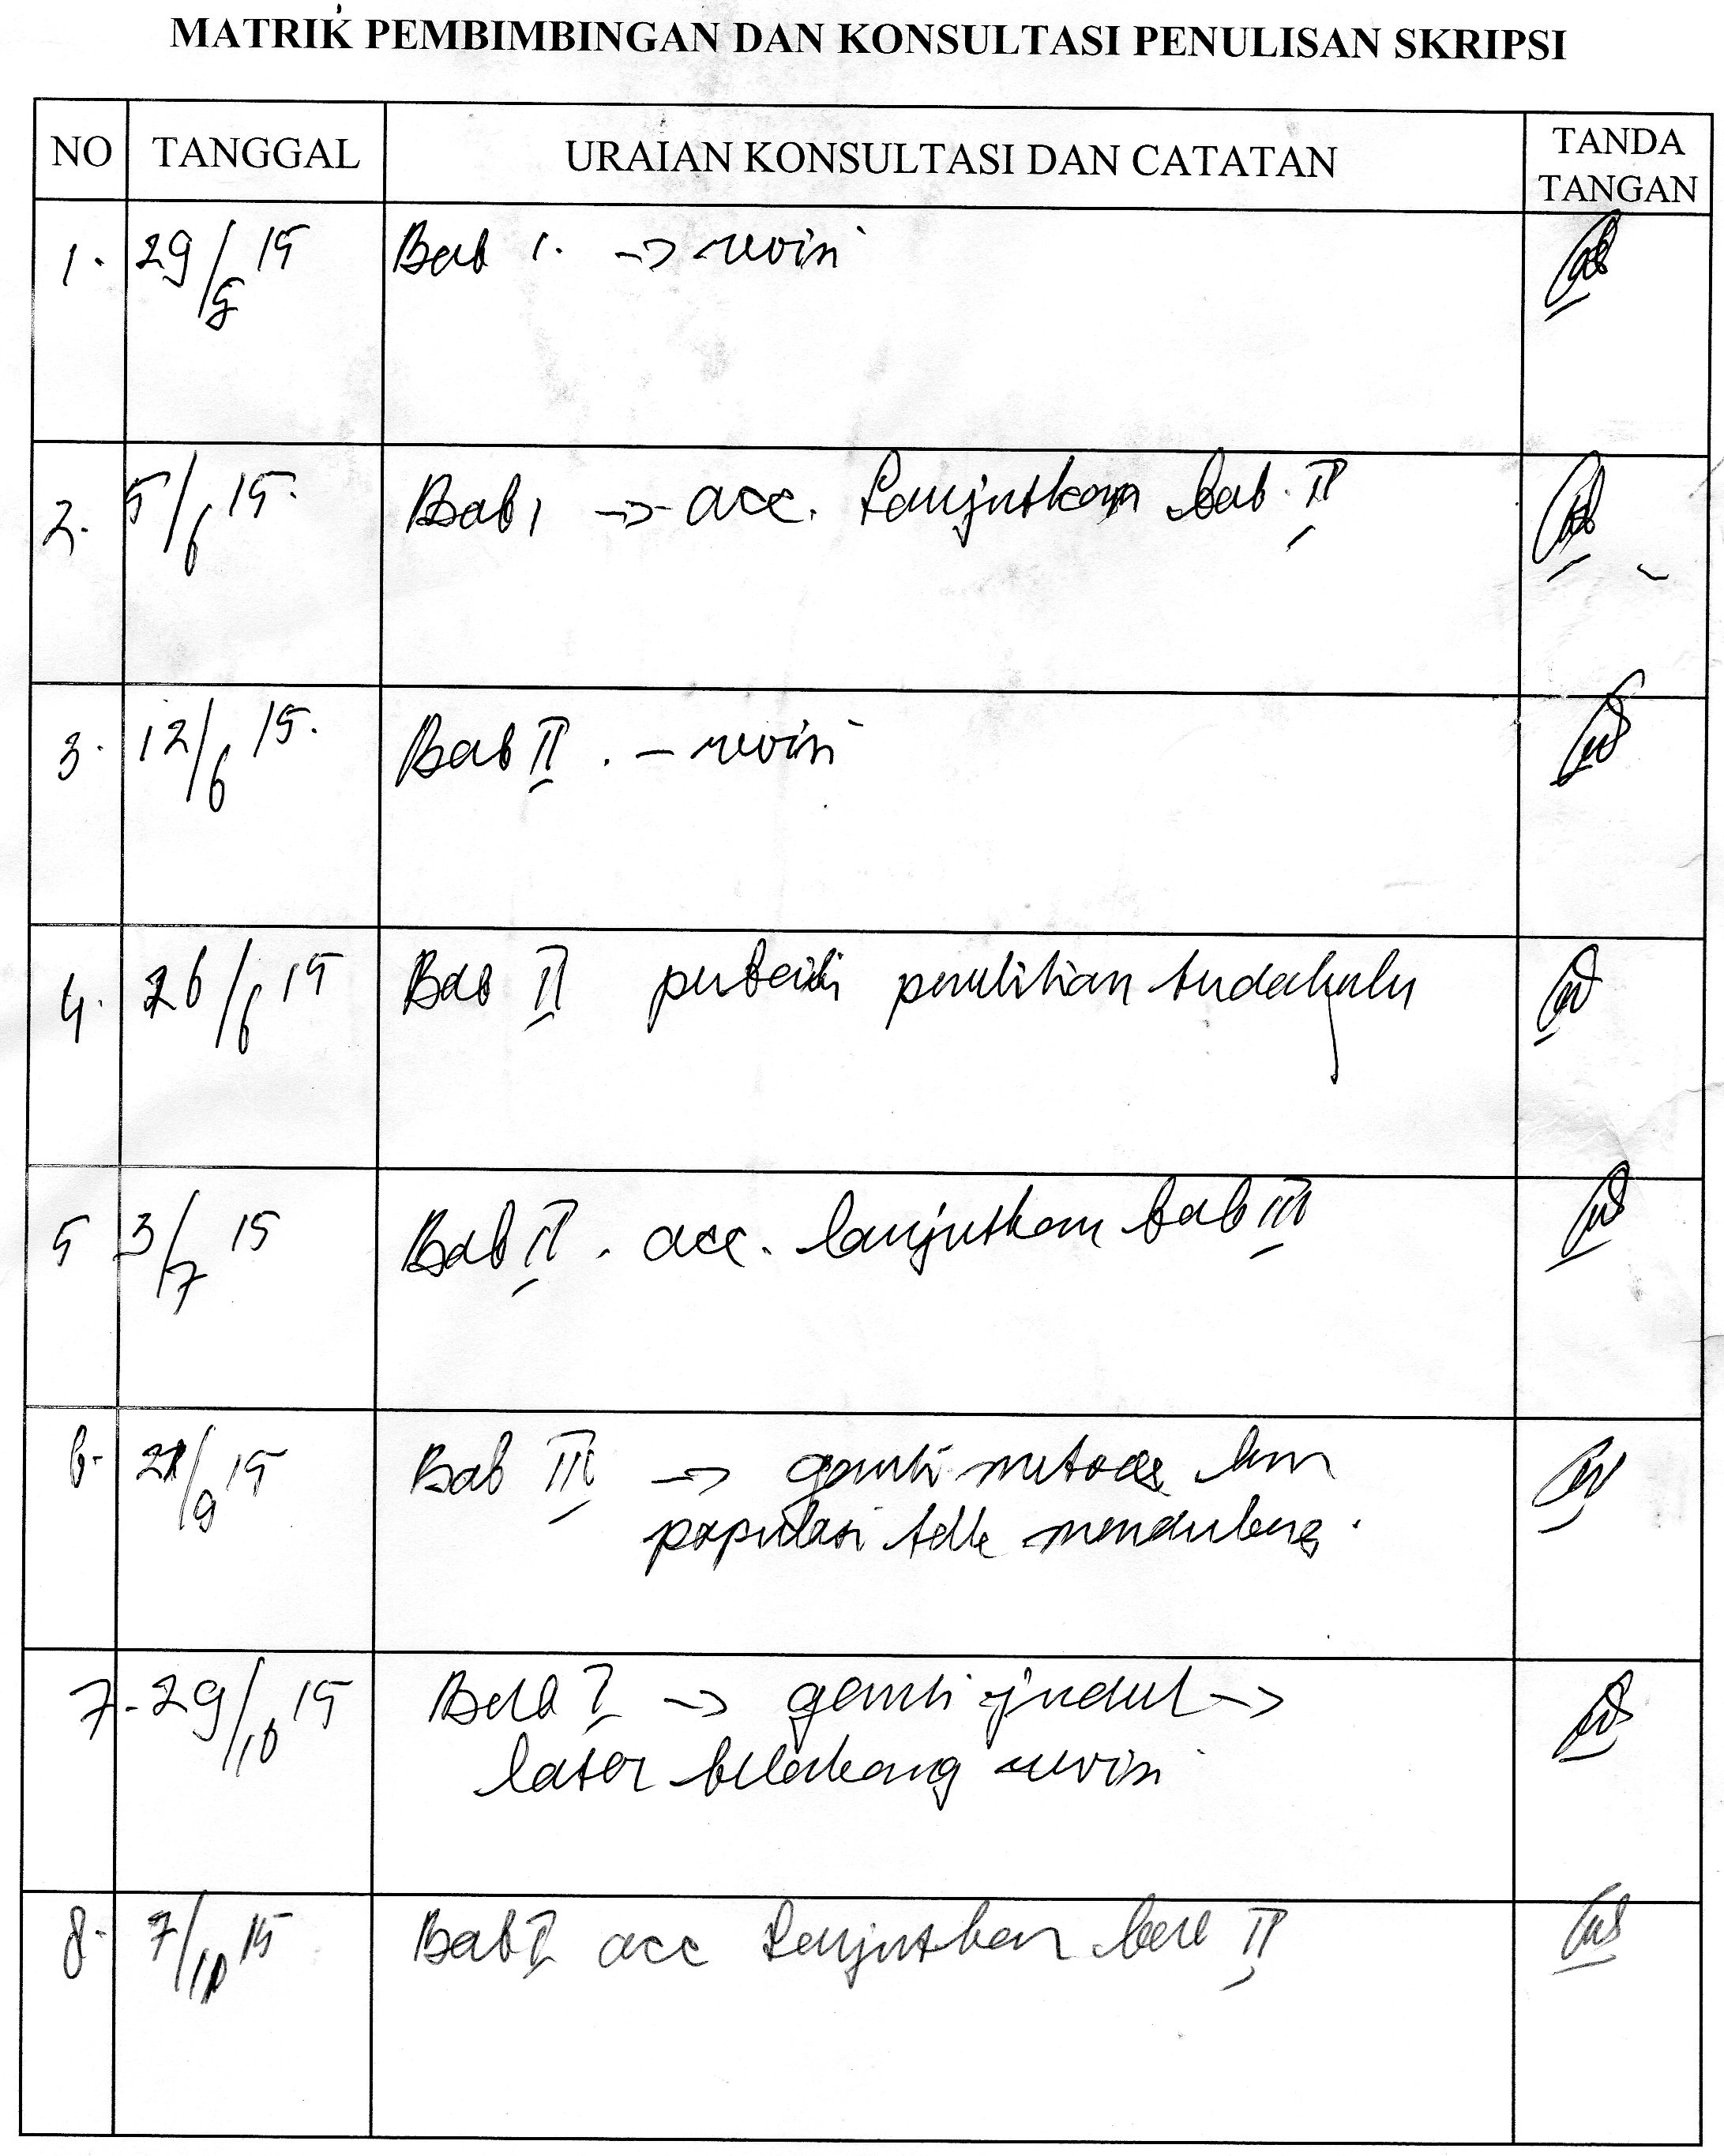 MATRIK PEMBIMBINGAN DAN KONSULTASI PENULISAN SKRIPSI
NO TANGGAL URAIAN KONSULTASI DAN CATATAN TANDA TANGAN
1. 29/5 15 Bab 1. -> revisi
2. 5/6 15. Bab 1 -> acc. Lanjutkan bab. II
3. 12/6 15. Bab II. - revisi
4. 26/6 15 Bab II perbaiki penelitian terdahulu
5 3/7 15 Bab II. acc. lanjutkan bab III
6. 21/9 15 Bab III -> ganti metode krn
populasi tdk mendukung.
7. 29/10 15 Bab I -> ganti judul ->
latar belakang revisi
8. 7/ 15 Bab I acc Lanjutkan bab II